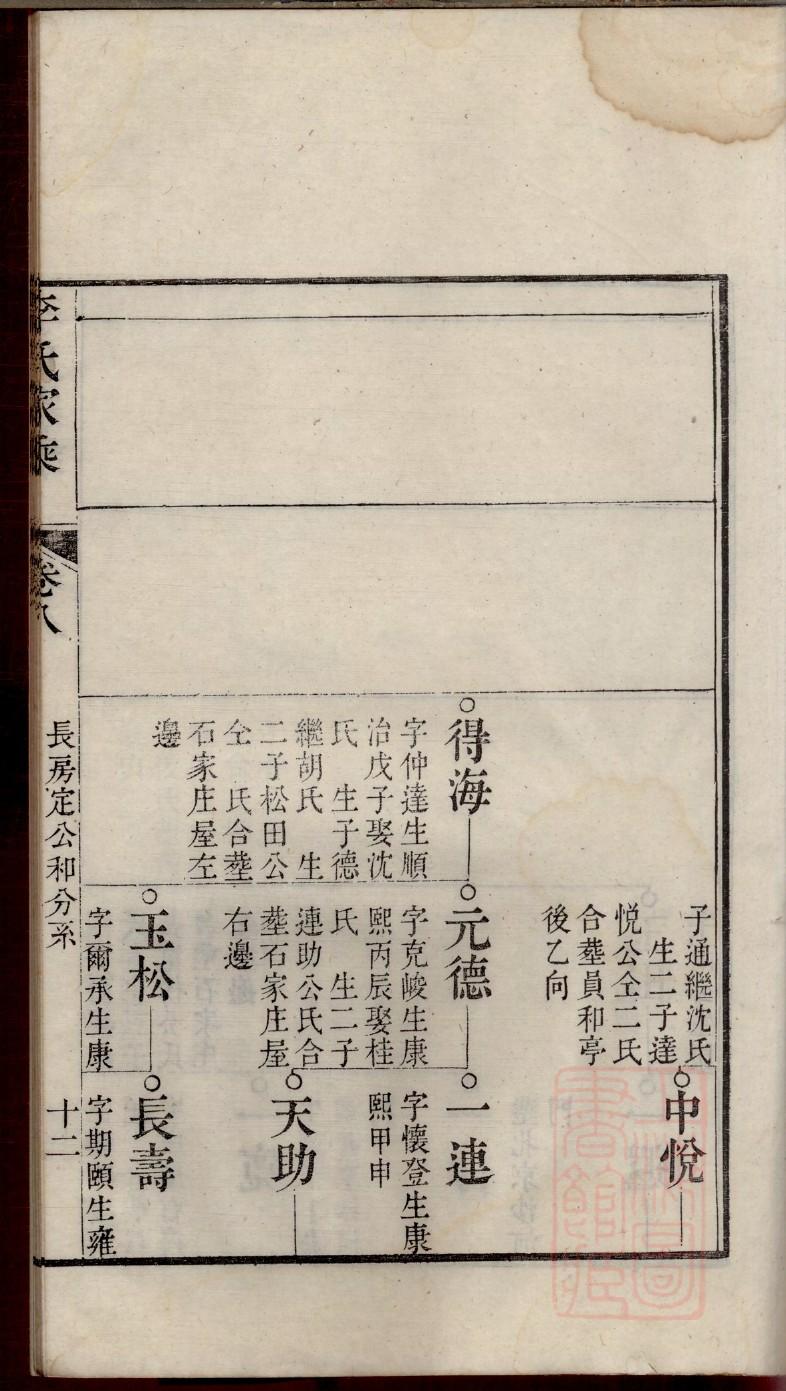 子通繼沈氏
生二子達
悅公仝二氏
合塟員和亭
後乙向
中悅
得海
字仲達生順
治戊子娶沈
氏 生子德
繼胡氏 生
二子松田公
仝 氏合塟
石家庄屋左
邊
元德
字克峻生康
熙丙辰娶桂
氏 生二子
連助公氏合
塟石家庄屋
右邊
一連
字懷登生康
熙甲申
天助
玉松
字爾承生康
長壽
字期頤生雍
李氏家乘
卷八
長房定公和分系
十二